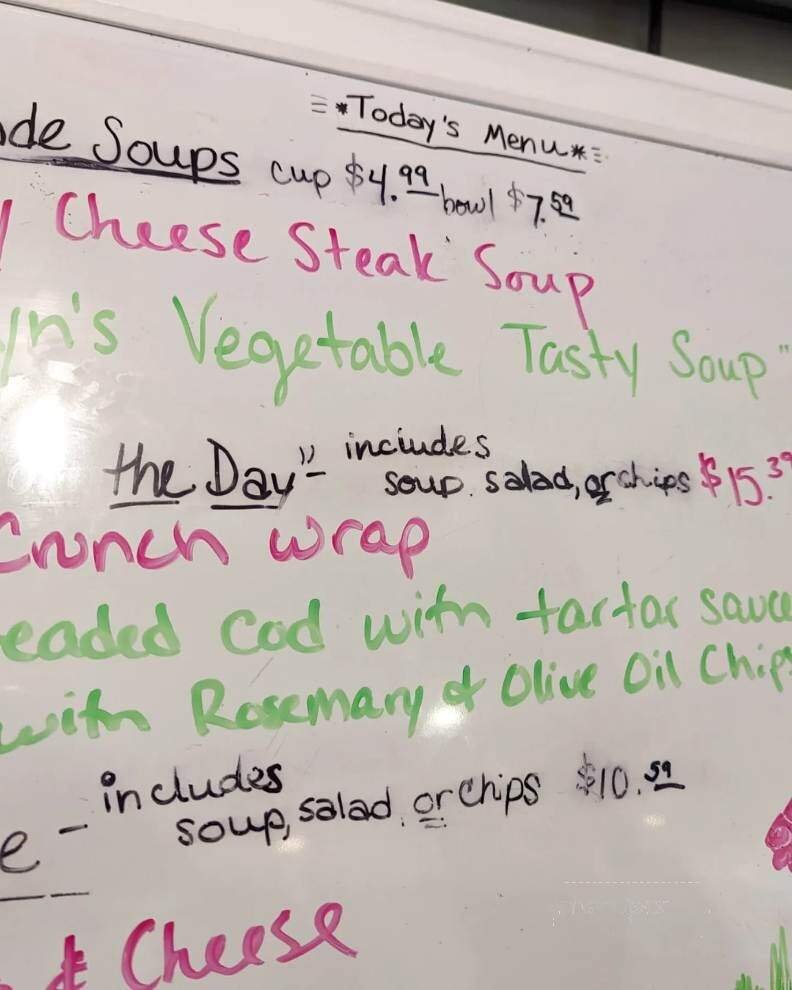 *Today's Menu*
de Soups cup $4.99 bowl $7.59
Cheese Steak Soup
yn's Vegetable Tasty Soup"
the Day" - includes
soup, salad, or chips $15.39
Crunch wrap
eaded Cod with tartar sauce
with Rosemary & Olive Oil Chips
includes
e - soup, salad, or chips $10.59
& Cheese